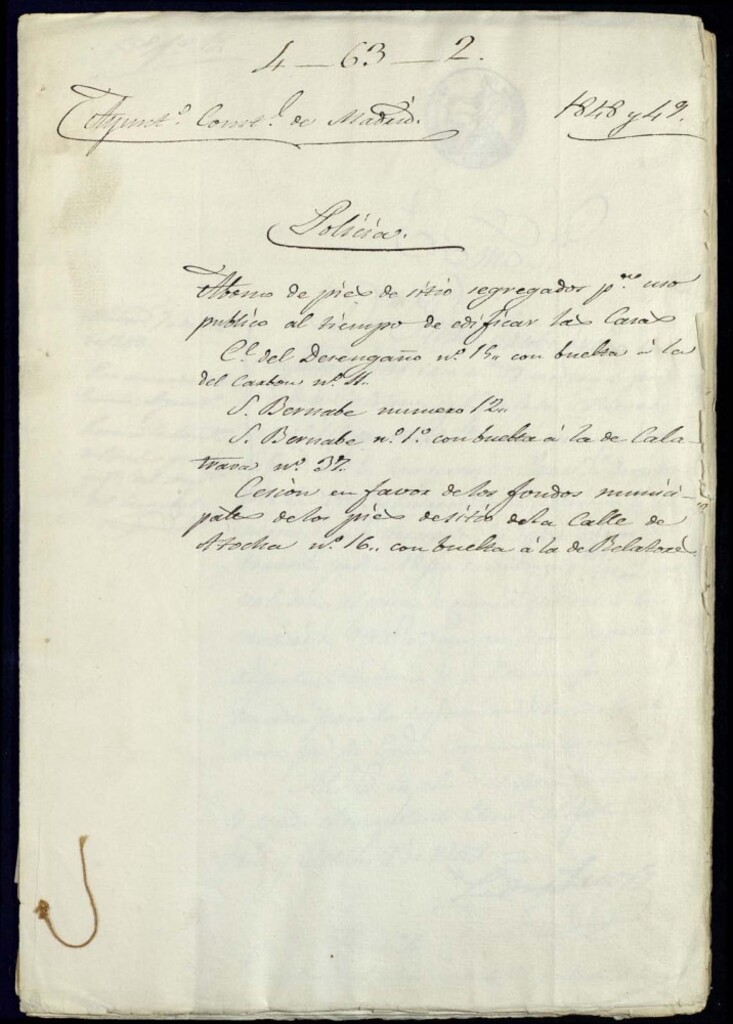 4 — 63 — 2.
Ayunt.º Const.l de Madrid.
1848 y 49.
Policia.
Abono de pies de sitio segregados p.ra uso
publico al tiempo de edificar las Casas
C.e del Desengaño n.º 15,, con buelta á la
del Carbon n.º 4.
S. Bernabe numero 12,,
S. Bernabe n.º 1.º con buelta á la de Cala-
trava n.º 37.
Cesion en favor de los fondos munici-
pales de los pies de sitio de la Calle de
Atocha n.º 16,, con buelta á la de Relatores.